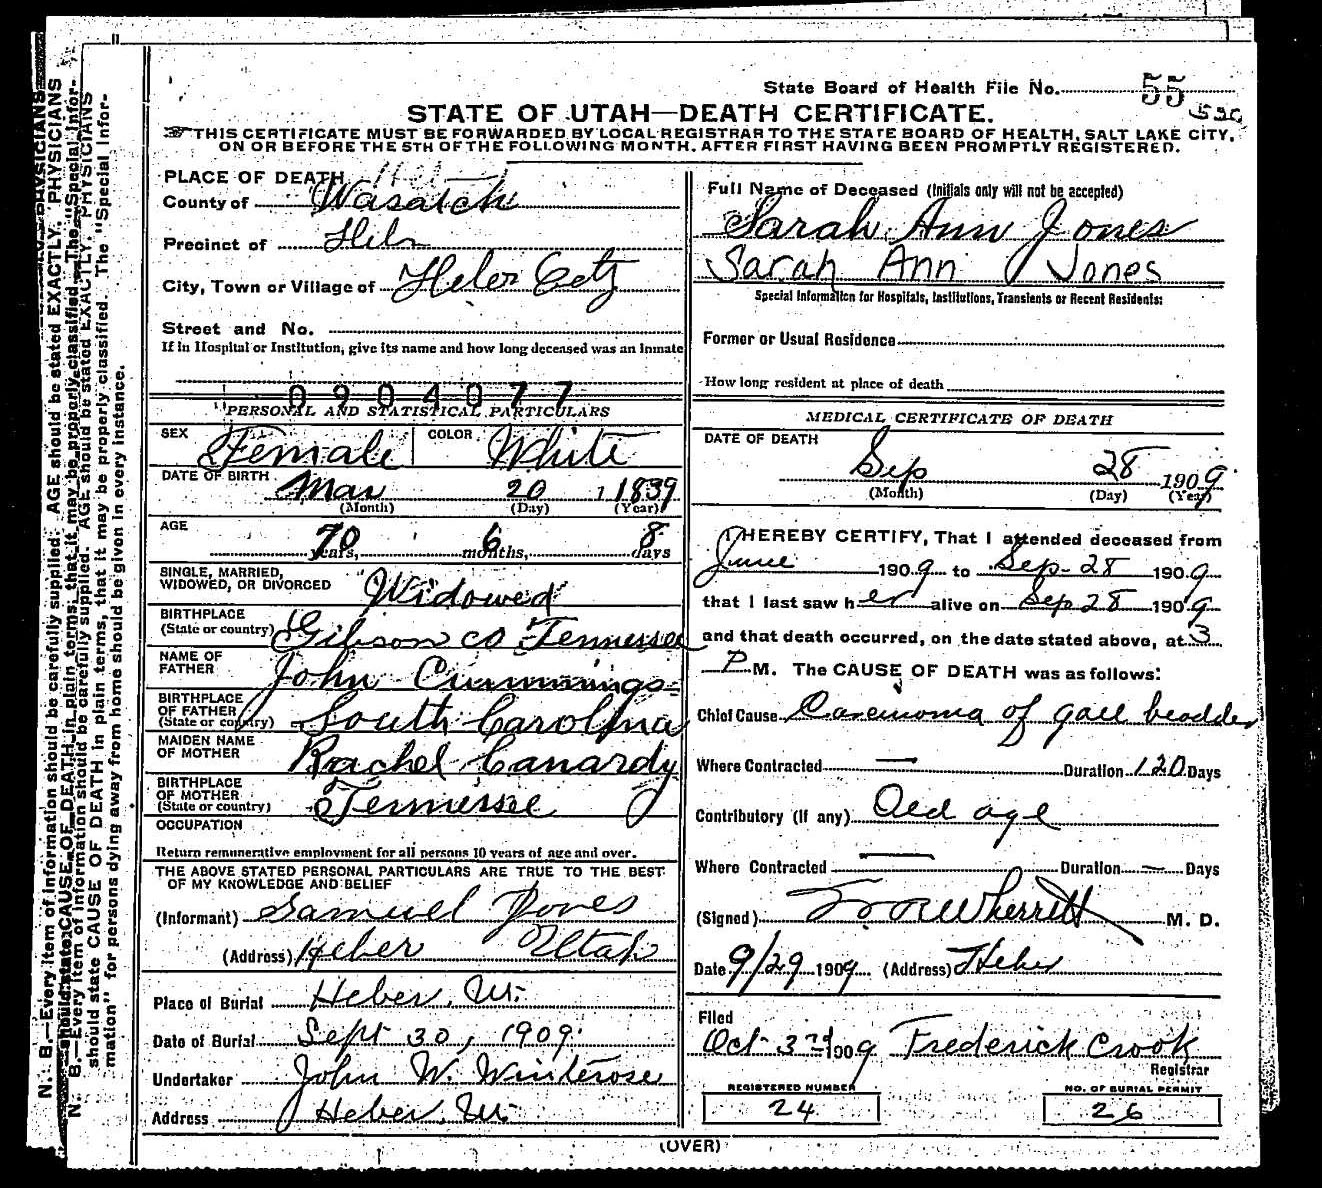 State Board of Health File No. 55
STATE OF UTAH—DEATH CERTIFICATE.
THIS CERTIFICATE MUST BE FORWARDED BY LOCAL REGISTRAR TO THE STATE BOARD OF HEALTH, SALT LAKE CITY,
ON OR BEFORE THE 5TH OF THE FOLLOWING MONTH, AFTER FIRST HAVING BEEN PROMPTLY REGISTERED.
PLACE OF DEATH
County of Wasatch
Precinct of Heber
City, Town or Village of Heber City
Street and No.
If in Hospital or Institution, give its name and how long deceased was an inmate
0904077
PERSONAL AND STATISTICAL PARTICULARS
SEX Female COLOR White
DATE OF BIRTH Mar 20 1839
(Month) (Day) (Year)
AGE 70 years, 6 months, 8 days
SINGLE, MARRIED,
WIDOWED, OR DIVORCED Widowed
BIRTHPLACE
(State or country) Gibson co Tennessee
NAME OF
FATHER John Cummings
BIRTHPLACE
OF FATHER
(State or country) South Carolina
MAIDEN NAME
OF MOTHER Rachel Canardy
BIRTHPLACE
OF MOTHER
(State or country) Tennessee
OCCUPATION
Return remunerative employment for all persons 10 years of age and over.
THE ABOVE STATED PERSONAL PARTICULARS ARE TRUE TO THE BEST
OF MY KNOWLEDGE AND BELIEF
(Informant) Samuel Jones
(Address) Heber Utah
Place of Burial Heber, Ut.
Date of Burial Sept 30, 1909.
Undertaker John W. Winterose
Address Heber, Ut.
Full Name of Deceased (Initials only will not be accepted)
Sarah Ann Jones
Sarah Ann Jones
Special Information for Hospitals, Institutions, Transients or Recent Residents:
Former or Usual Residence
How long resident at place of death
MEDICAL CERTIFICATE OF DEATH
DATE OF DEATH
Sep 28 1909
(Month) (Day) (Year)
I HEREBY CERTIFY, That I attended deceased from
June 1909 to Sep-28 1909
that I last saw her alive on Sep 28 1909
and that death occurred, on the date stated above, at 3
P.M. The CAUSE OF DEATH was as follows:
Chief Cause Carcinoma of gall bladder
Where Contracted — Duration 120 Days
Contributory (If any) Old age
Where Contracted — Duration — Days
(Signed) Wherritt M. D.
Date 9/29 1909 (Address) Heber
Filed
Oct 3rd 1909 Frederick Crook
Registrar
REGISTERED NUMBER
24
NO. OF BURIAL PERMIT
26
(OVER)
N. B.—Every item of information should be carefully supplied. AGE should be stated EXACTLY. PHYSICIANS
should state CAUSE OF DEATH in plain terms, that it may be properly classified. The "Special Infor-
mation" for persons dying away from home should be given in every instance.